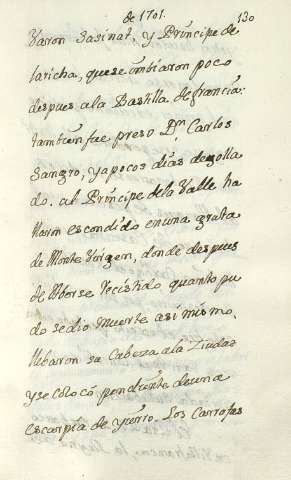 de 1701. 130
Varon Sasinat, y Príncipe de
laricha, que se imbiaron poco
despues a la Bastilla de francia:
tambien fue preso Dn. Carlos
Sangro, y a pocos dias degolla
do. al Príncipe de la Valle ha
llaron escondido en una gruta
de Monte Vírgen, donde despues
de Aberse recistido quanto pu
do se dio muerte asi mismo.
llebaron su Cabeza a la Ziudad
y se colocó pendiente de una
escarpia de yerro. Los Carrafas